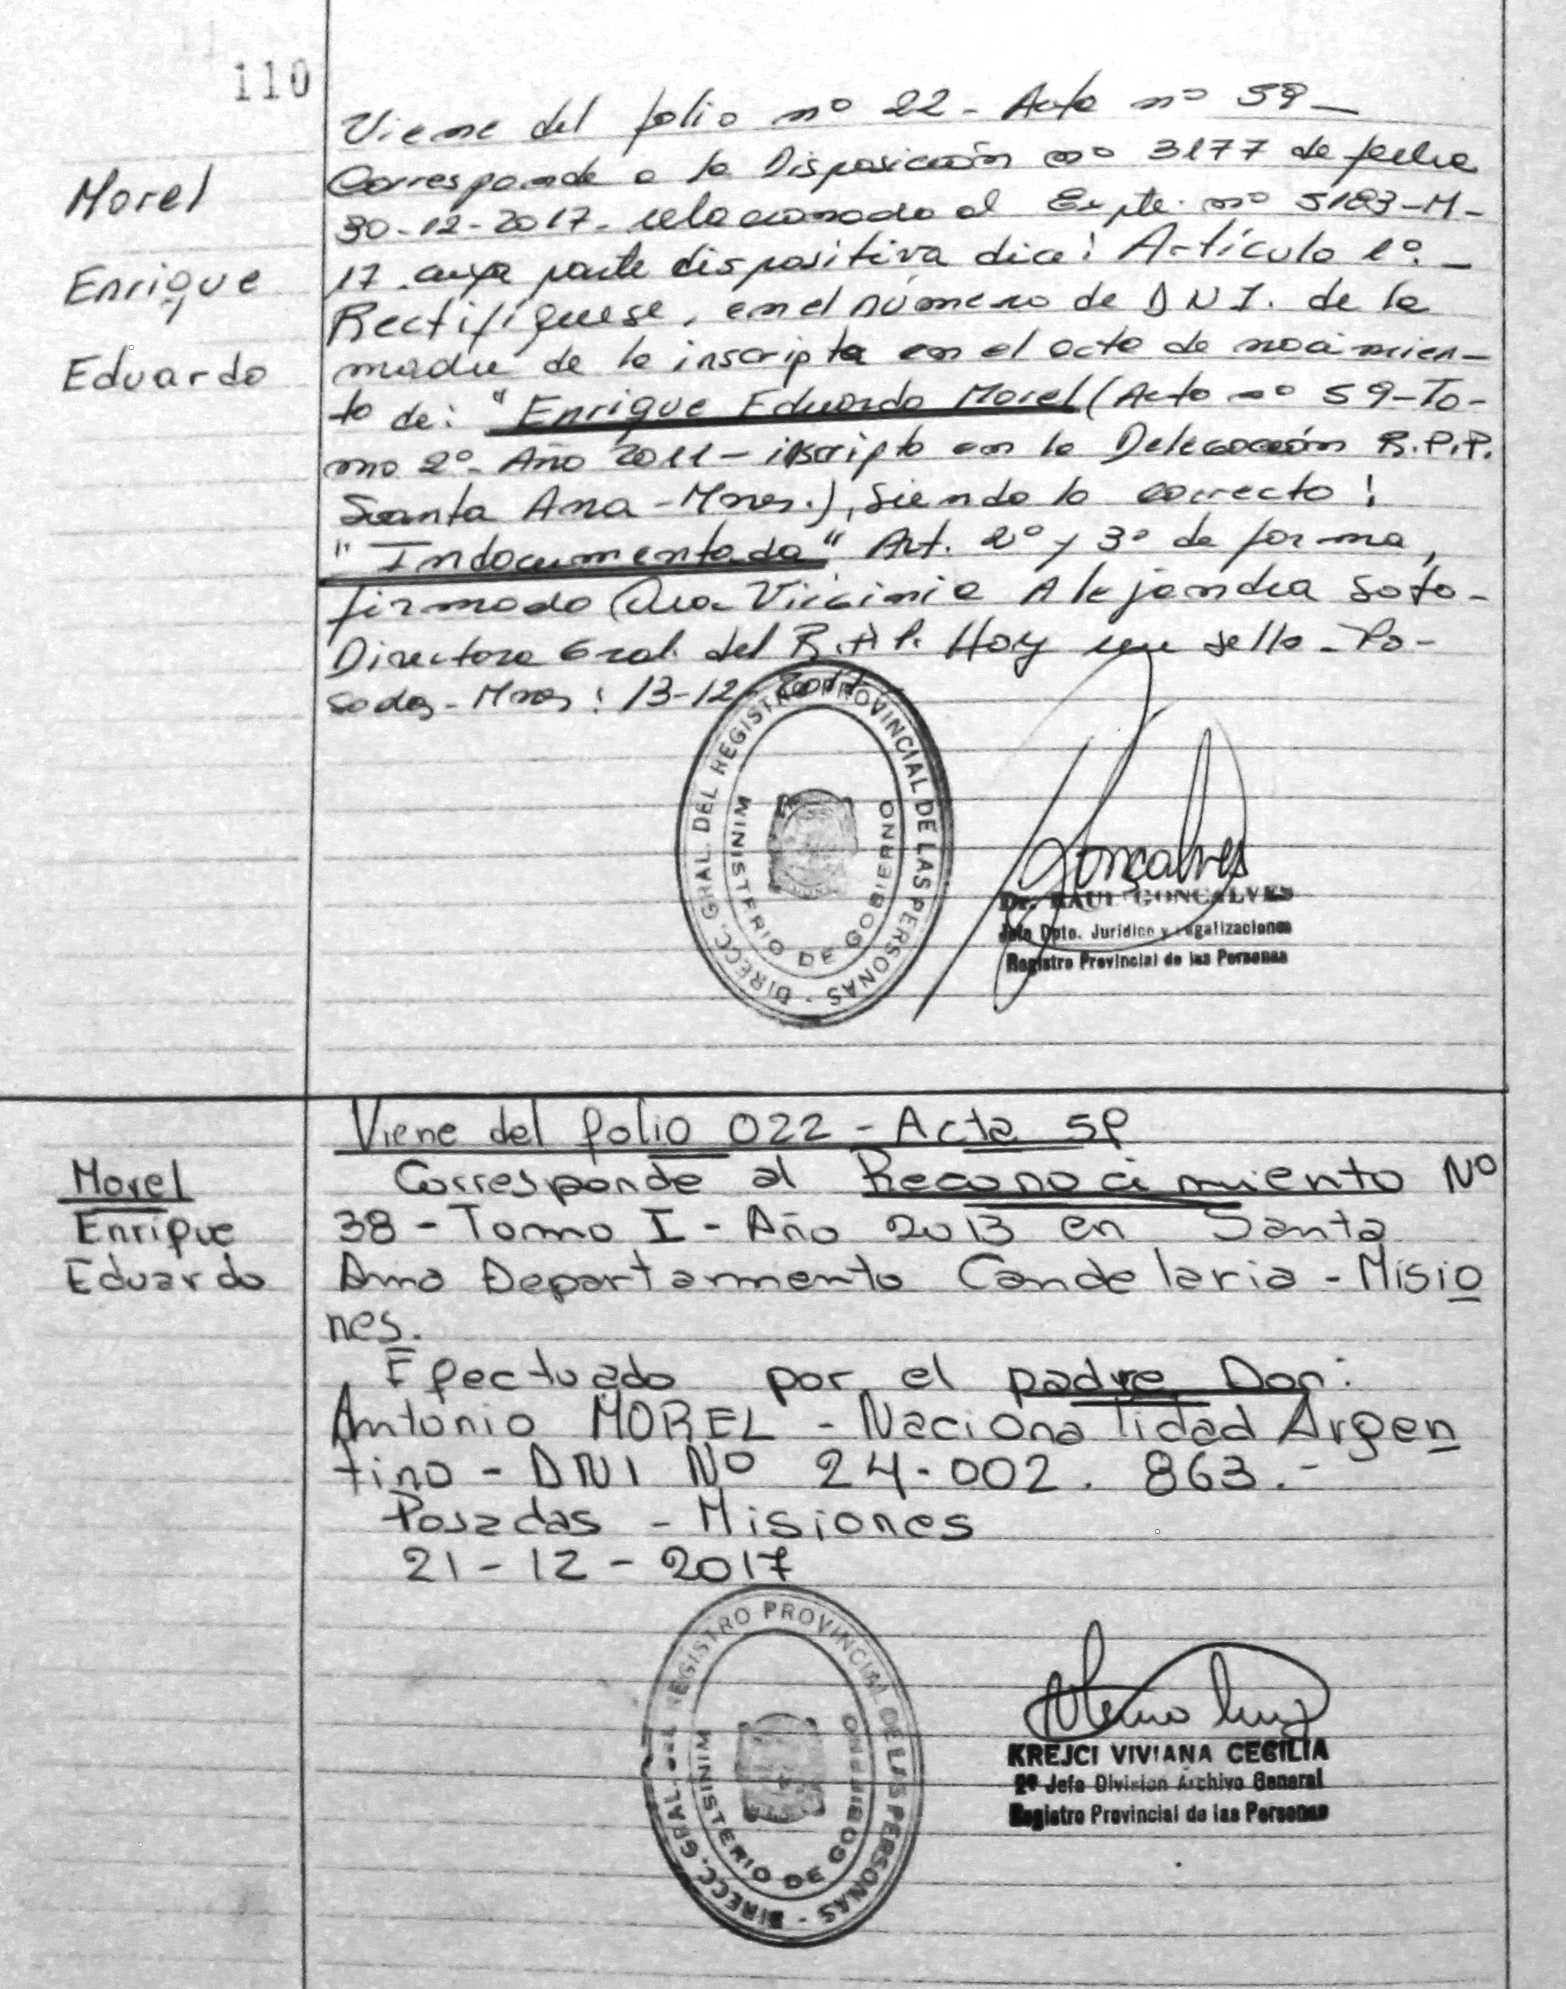 110
Morel
Enrique
Eduardo
Viene del folio nº 22 - Acta nº 59 -
Corresponde a la Disposición nº 3177 de fecha
30-12-2017. relacionado al Expte. nº 5183-M-
17. cuya parte dispositiva dice: Artículo 1º. -
Rectifíquese, en el número de D N I. de la
madre de la inscripta en el acta de nacimien-
to de: "Enrique Eduardo Morel (Acta nº 59-To-
mo 2º- Año 2011 - inscripto en la Delegación R.P.P.
Santa Ana - Mnes.), siendo lo correcto:
"Indocumentada" Art. 2º y 3º de forma,
firmado Dra. Virginia Alejandra Soto-
Directora Gral. del R.P.P. Hoy un sello - Po-
sadas - Mnes: 13-12-
DIRECC. GRAL. DEL REGISTRO PROVINCIAL DE LAS PERSONAS -
MINISTERIO DE GOBIERNO
Gonçalves
Dr. RAUL GONCALVES
Jefe Dpto. Jurídico y Legalizaciones
Registro Provincial de las Personas
Morel
Enrique
Eduardo
Viene del folio 022 - Acta 59
Corresponde al Reconocimiento Nº
38 - Tomo I - Año 2013 en Santa
Ana Departamento Candelaria - Misio
nes.
Efectuado por el padre Don:
Antonio MOREL - Nacionalidad Argen
tino - DNI Nº 24.002.863.-
Posadas - Misiones
21-12-2017
DIRECC. GRAL. DEL REGISTRO PROVINCIAL DE LAS PERSONAS -
MINISTERIO DE GOBIERNO
KREJCI VIVIANA CECILIA
2º Jefe Division Archivo General
Registro Provincial de las Personas